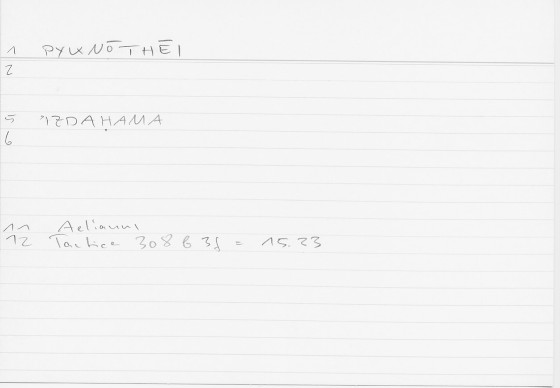 1 PYKNŌTHĒI
2
5 ʾIZDAḤAMA
6
11 Aelianus
12 Tactica 308 B 3f = 15.23